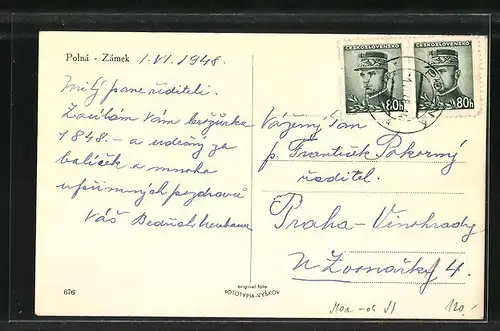 Polná - Zámek 1. VI. 1948.
Milý pane řediteli.
Zasílám Vám brožurku
1848. - a srdečný za
balíček a mnoho
upřímných pozdravů
Váš Bedřich
ČESKOSLOVENSKO
80h
ČESKOSLOVENSKO
80h
Vážený Pan
p. František Pokorný
ředitel.
Praha - Vinohrady
Na Zvonařky 4.
676
original foto
FOTOTYPIA-VYŠKOV
120,-